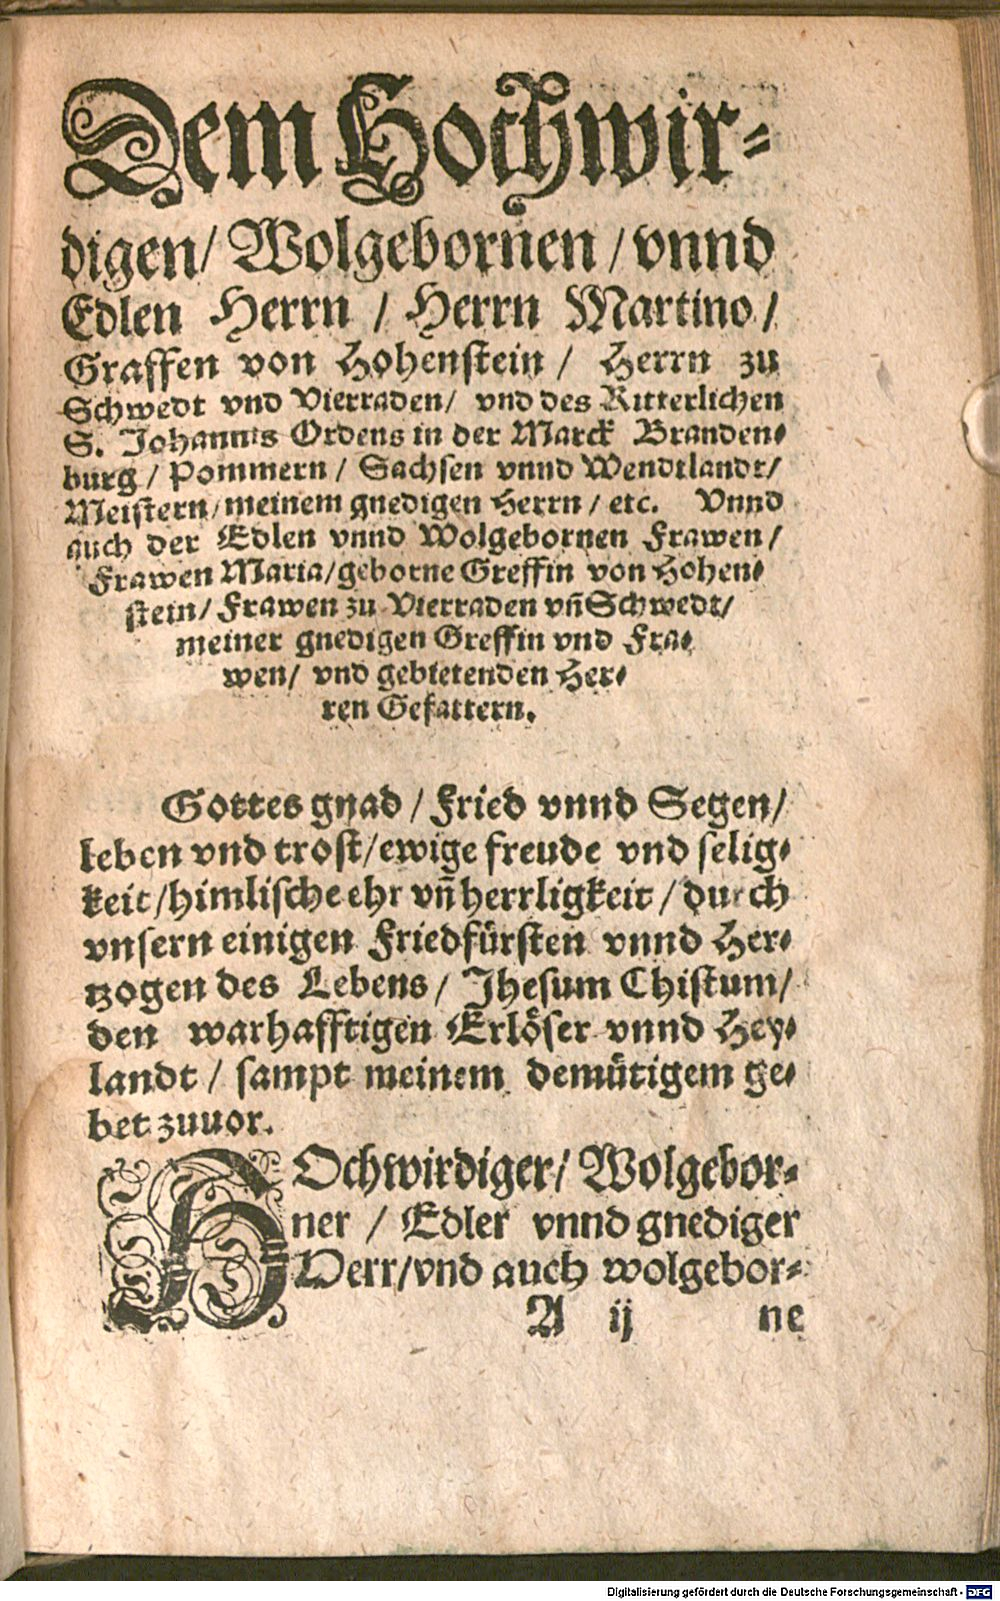 Dem Hochwir-
digen/ Wolgebornen/ vnnd
Edlen Herrn / Herrn Martino/
Graffen von Hohenstein / Herrn zu
Schwedt vnd Vierraden/ vnd des Ritterlichen
S. Johannis Ordens in der Marck Branden-
burg / Pommern / Sachsen vnnd Wendtlandt/
Meistern/ meinem gnedigen Herrn / etc. Vnnd
auch der Edlen vnnd Wolgebornen Frawen/
Frawen Maria/geborne Greffin von Hohen-
stein/ Frawen zu Vierraden vn̄ Schwedt/
meiner gnedigen Greffin vnd Fra-
wen/ vnd gebietenden Her-
ren Gefattern.
Gottes gnad / Fried vnnd Segen/
leben vnd trost/ewige freude vnd selig-
keit/himlische ehr vn̄ herrligkeit / durch
vnsern einigen Friedfürsten vnnd Her-
tzogen des Lebens/ Jhesum Chistum/
den warhafftigen Erlöser vnnd Hey-
landt / sampt meinem demütigem ge-
bet zuuor.
HOchwirdiger/ Wolgebor-
ner / Edler vnnd gnediger
Herr/vnd auch wolgebor-
A ij ne
Digitalisierung gefördert durch die Deutsche Forschungsgemeinschaft - DFG